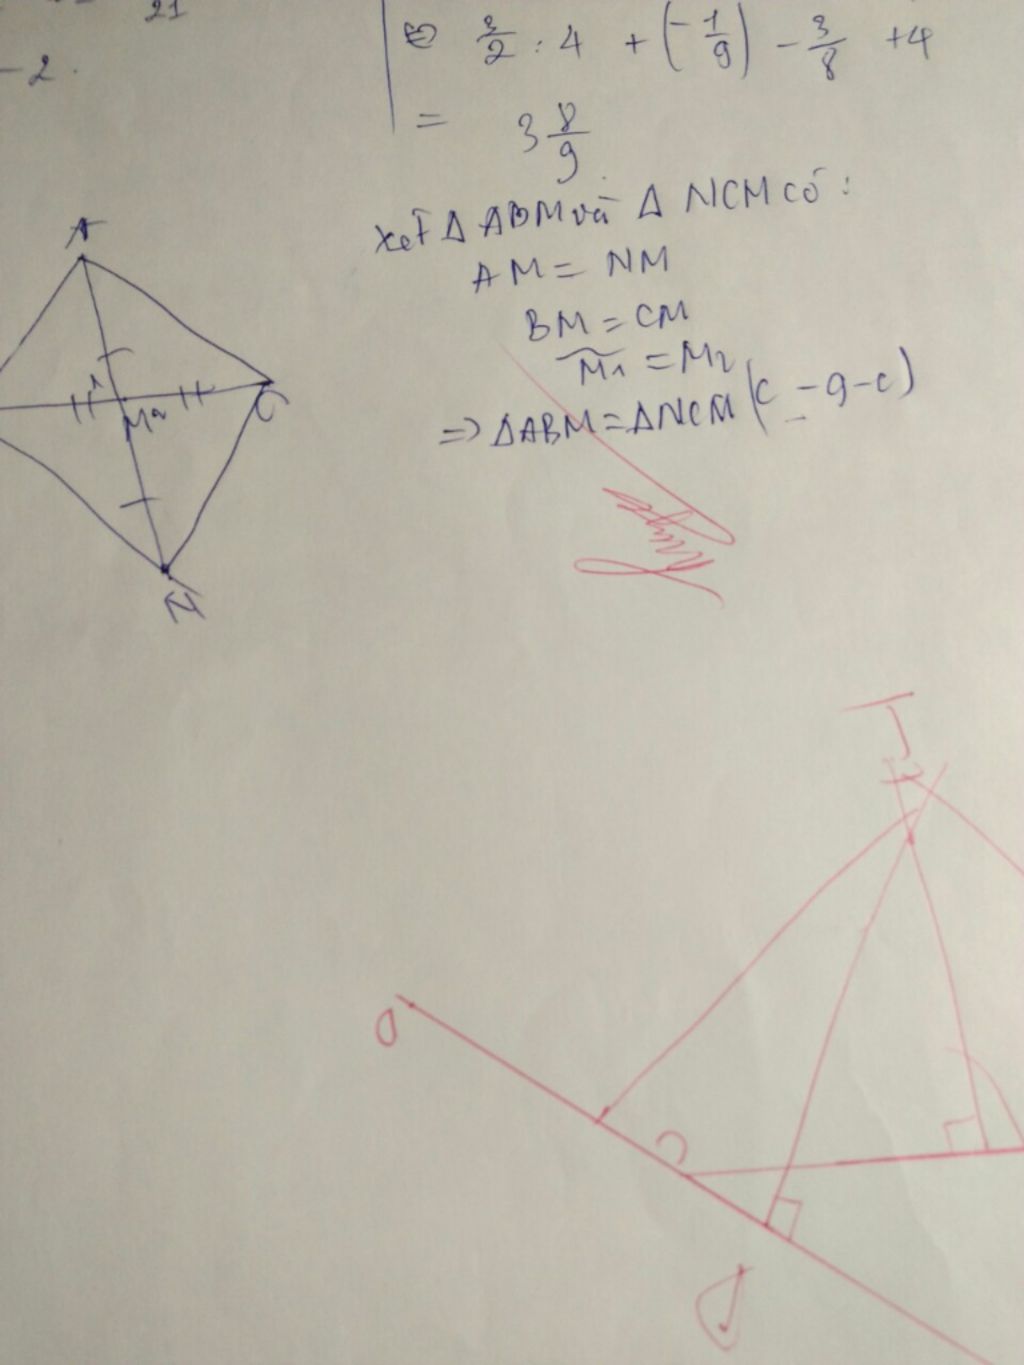 21
-2.
⇔ 3/2 : 4 + (-1/9) - 3/8 + 4
= 3 8/9
xét Δ ABM và Δ NCM có :
AM = NM
BM = CM
M1 = M2
=> ΔABM = ΔNCM (c - g - c)
A
1
M 2
C
N
O